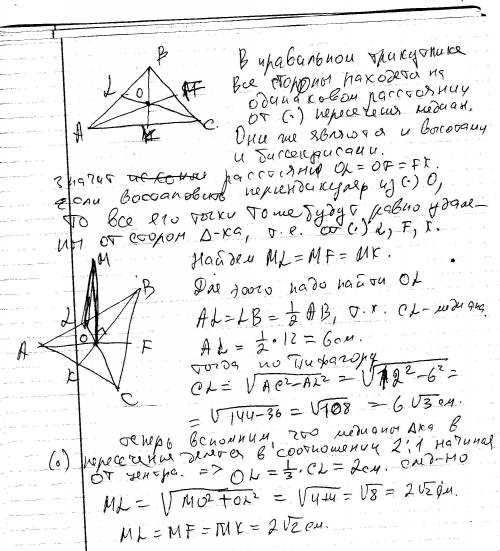 B
L O F
A M C
В правильном трикутнике
все стороны находятся на
одинаковом расстоянии
от (·) пересечения медиан.
Они же являются и высотами
и биссекрисами.
Значит расстояния OL = OF = FK.
если восстановить перпендикуляр из (·) O,
то все его точки тоже будут равно удале-
ны от сторон Δ-ка, т.е. от (·) L, F, K.
M
B
L
O
A F
K
C
Найдем ML = MF = MK.
Для этого надо найти OL
AL = LB = 1/2 AB, т.к. CL - медиана
AL = 1/2 · 12 = 6 см.
тогда по Пифагору
CL = √AC² - AL² = √12² - 6² =
= √144 - 36 = √108 = 6√3 см.
теперь вспомним, что медианы Δка в
(о) пересечения делятся в соотношении 2:1 начиная
от центра. => OL = 1/3 · CL = 2см. след-но
ML = √MO² + OL² = √4+4 = √8 = 2√2 см.
ML = MF = MK = 2√2 см.